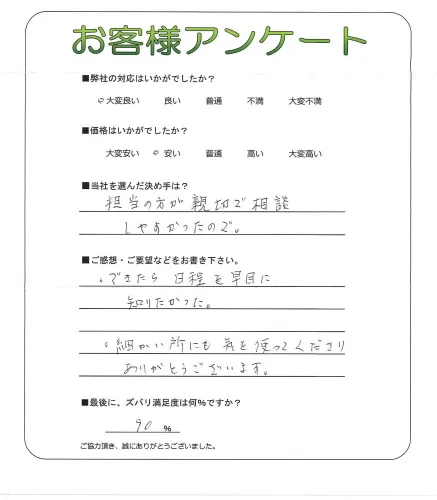 お客様アンケート
■弊社の対応はいかがでしたか？
○大変良い 良い 普通 不満 大変不満
■価格はいかがでしたか？
大変安い ○安い 普通 高い 大変高い
■当社を選んだ決め手は？
担当の方が親切で相談
しやすかったので。
■ご感想・ご要望などをお書き下さい。
・できたら日程を早目に
知りたかった。
・細かい所にも気を使ってくださり
ありがとうございます。
■最後に、ズバリ満足度は何%ですか？
90 %
ご協力頂き、誠にありがとうございました。